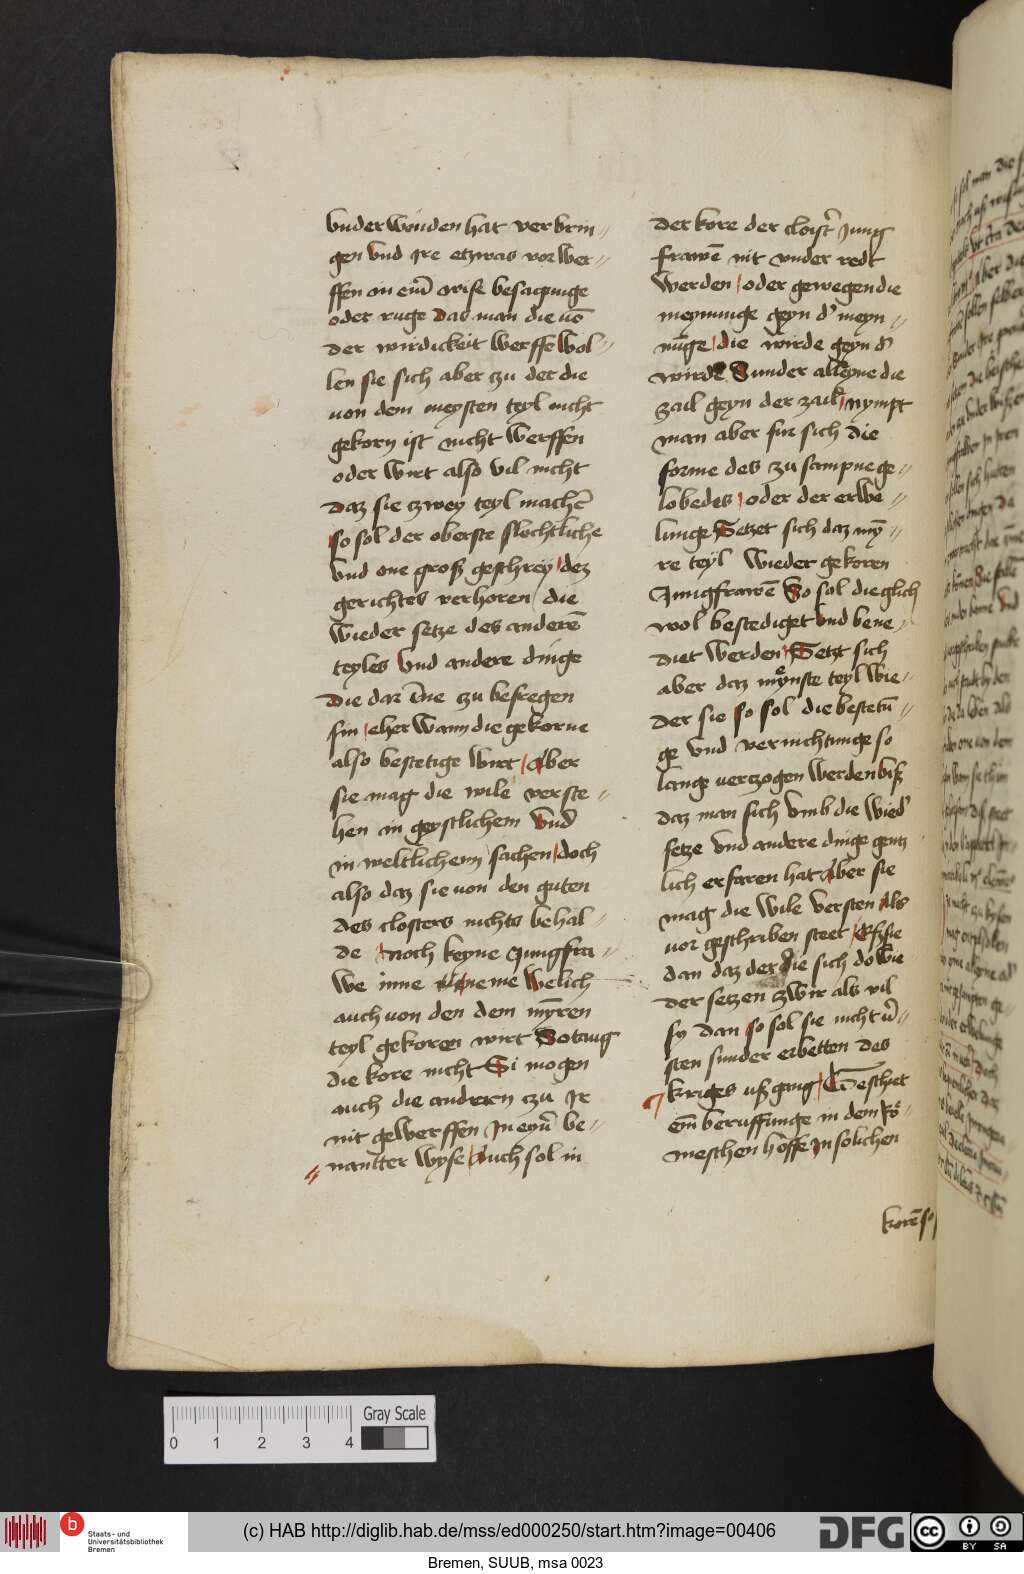 vnderwunden hat verbrin=
gen vnd Ire etzwas vorwer=
ffen in eim̄ wise besagunge
oder ruge Das man die uō
der wirdickeit werffe wol=
len sie sich aber zu der die
von dem meysten teyl nicht
gekorn ist nicht werffen
oder wirt also vil nicht
Daz sie zwey teyl machē
so sol der oberste slechtliche
vnd one groß geschrey / dez
gerichtes verhoren / die
wieder setze des anderē
teyles vnd andere dinge
Die dar ūme zu befregen
sin / eher wann die gekorne
also bestetige wirt / Aber
sie mag die wile verste=
hen in geystlichem vnd
in weltlichenn sachen / doch
also daz sie von den guten
des closters nichts behal=
de / noch keyne Jungfra=
we inne neme welich
auch von den dem myren
teyl gekoren wirt So taug
die kore nicht Si mogen
auch die andern zu Ir
nit gewerffen In eyn̄ be=
nanlter wyse / Auch sol in
der kore der cloist̄ Jung
frawē nit vnder redt
werden / oder gewegen die
meynunge geyn d' meyn=
nūge / die wirde geyn d'
wirde Sunder alleyne die
zail geyn der zail / nympt
man aber fur sich die
forme des zu sampne ge=
lobedes / oder der erwe=
lunge Setzet sich daz mȳ=
re teyl wieder gekoren
Jungfrawē So sol die glich
wol bestediget vnd bene=
diet werden / Setzt sich
aber daz mynste teyl wie=
der sie so sol die bestetū=
ge vnd vernichtunge so
lange vertzogen werden biß
daz man sich vmb die wied'
setze vnd andere dinge gentz
lich erfaren hat Aber sie
mag die wile versten Als
vor geschriben steet / Eß sie
dan daz der die sich do wie
der setzen zwir als vil
sy dan so sol sie nicht v̄=
sten sunder erbetten des
kriges uß gang / Geschiet
em̄ beruffunge in dem Rō=
meschen hoffe In solichen
korē so
0 1 2 3 4
Gray Scale
Staats- und
Universitätsbibliothek
Bremen
(c) HAB http://diglib.hab.de/mss/ed000250/start.htm?image=00406
DFG
cc BY SA
Bremen, SUUB, msa 0023